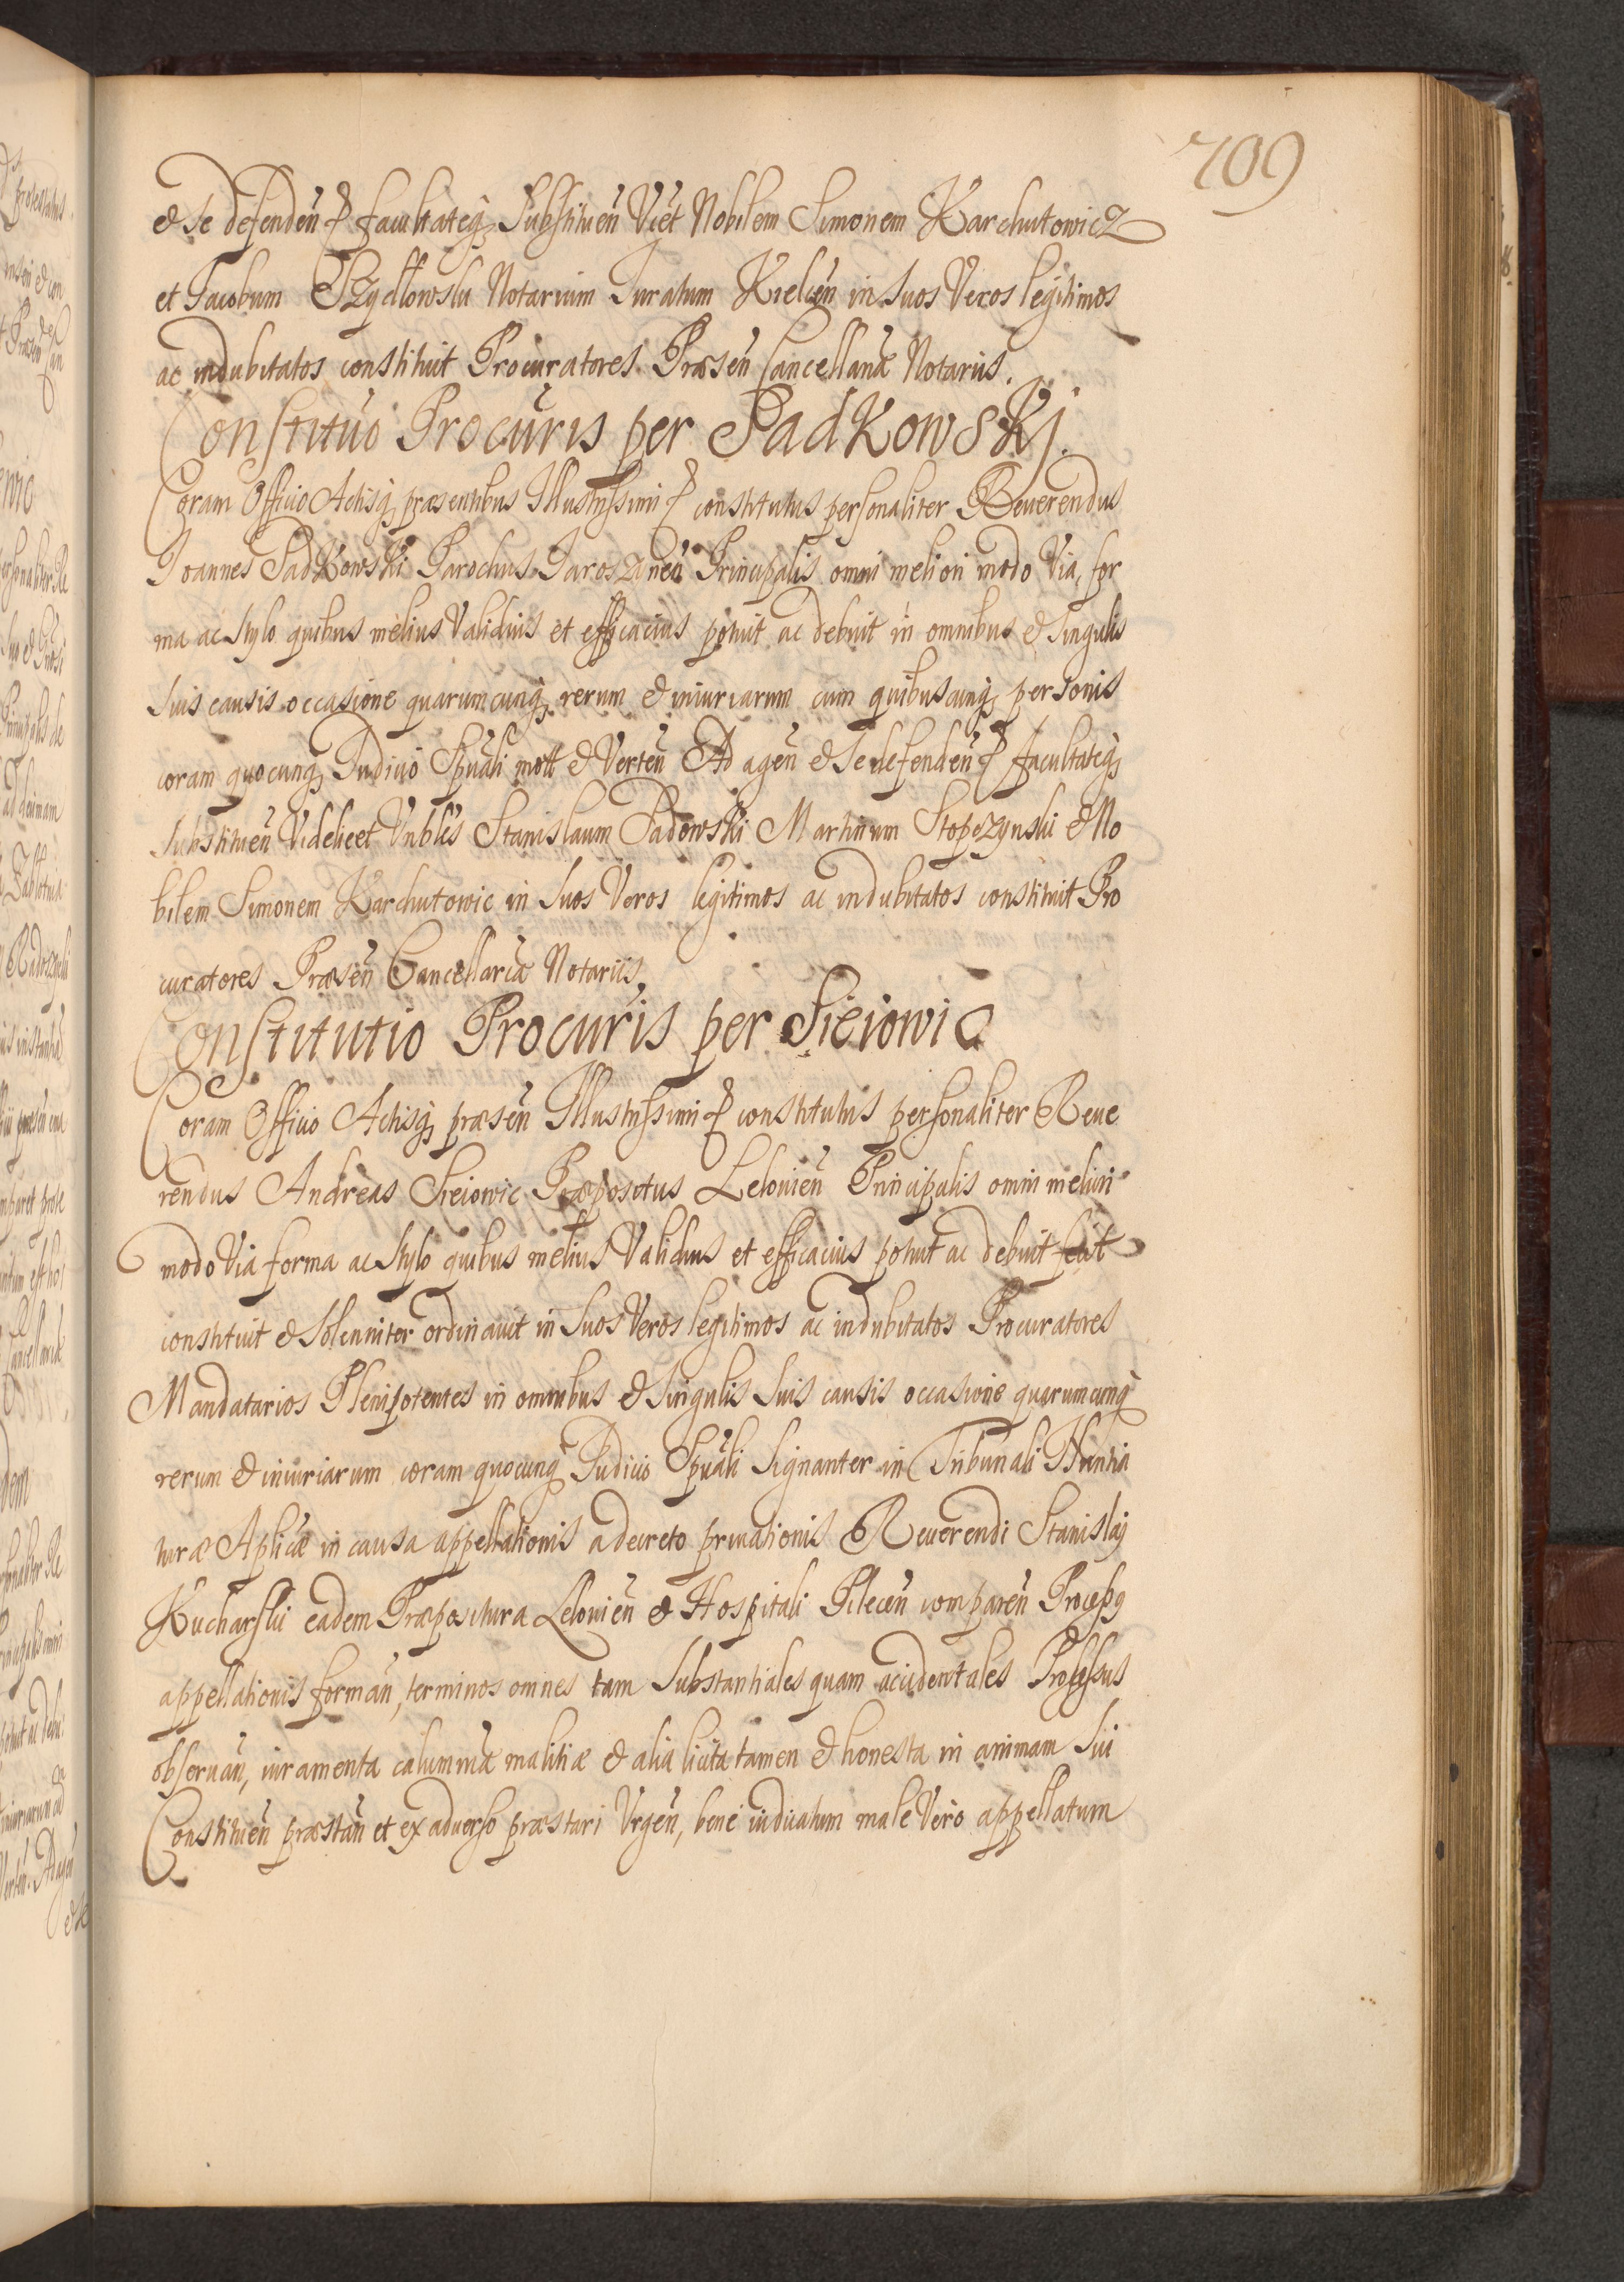 709
& se defendeñ & facultateq3 substituen Vićt Nobilem Simonem Karchutowicz
et Jacobum Szydłowski Notarium Juratum Kielceñ in suos Veros legitimos
ac indubitatos constituit Procuratores Præseñ Cancellariæ Notariis.
Constituo Procuris per Padkowskj.
Coram Officio Actisq3 præsentibus Illustrissimi & constitutus personaliter Reuerendus
Joannes Padkowski Parochus Jaroszyneñ Principalis omni meliori modo Via, for
ma ac stylo quibus melius Validius et efficacius potuit ac debuit in omnibus & singulis
suis causis occasione quarumcunq3 rerum & iniuriarum cum quibuscunq3 personis
coram quocunq3 Judicio Spuali mott & Verteñ Ad ageñ & se defendeñ & facultateq3
substitueñ Videlicet Vnbles Stanislaum Padowski Martinum Stopczynski & No
bilem Simonem Karchutowic in suos Veros legitimos ac indubitatos constituit Pro
curatores Præseñ Cancellariæ Notariis.
Constitutio Procuris per Sieiowic
Coram Officio Actisq3 præseñ Illustrissimi & constitutus personaliter Reue
rendus Andreas Sieiowic Præpositus Lelouieñ Principalis omni meliori
modo Via forma ac stylo quibus melius Validius et efficacius potuit ac debuit fecit
constituit & solenniter ordinauit in suos Veros legitimos ac indubitatos Procuratores
Mandatarios Plenipotentes in omnibus & singulis suis causis occasione quarumcunq3
rerum & iniuriarum coram quocunq3 Judicio Spuali signanter in Tribunali Nuntia
turæ Aplicæ in causa appellationis a decreto priuationis Reuerendi Stanislaj
Kucharski eadem Præpositura Lelouieñ & Hospitali Pileceñ compareñ Process9
appellationis formañ, terminos omnes tam substantiales quam accidentales Processus
obseruañ, iuramenta calumniæ malitiæ & alia licita tamen & honesta in animam sui
Constitueñ præstañ et ex aduerso præstari Vrgeñ, bene iudicatum male Vero appellatum